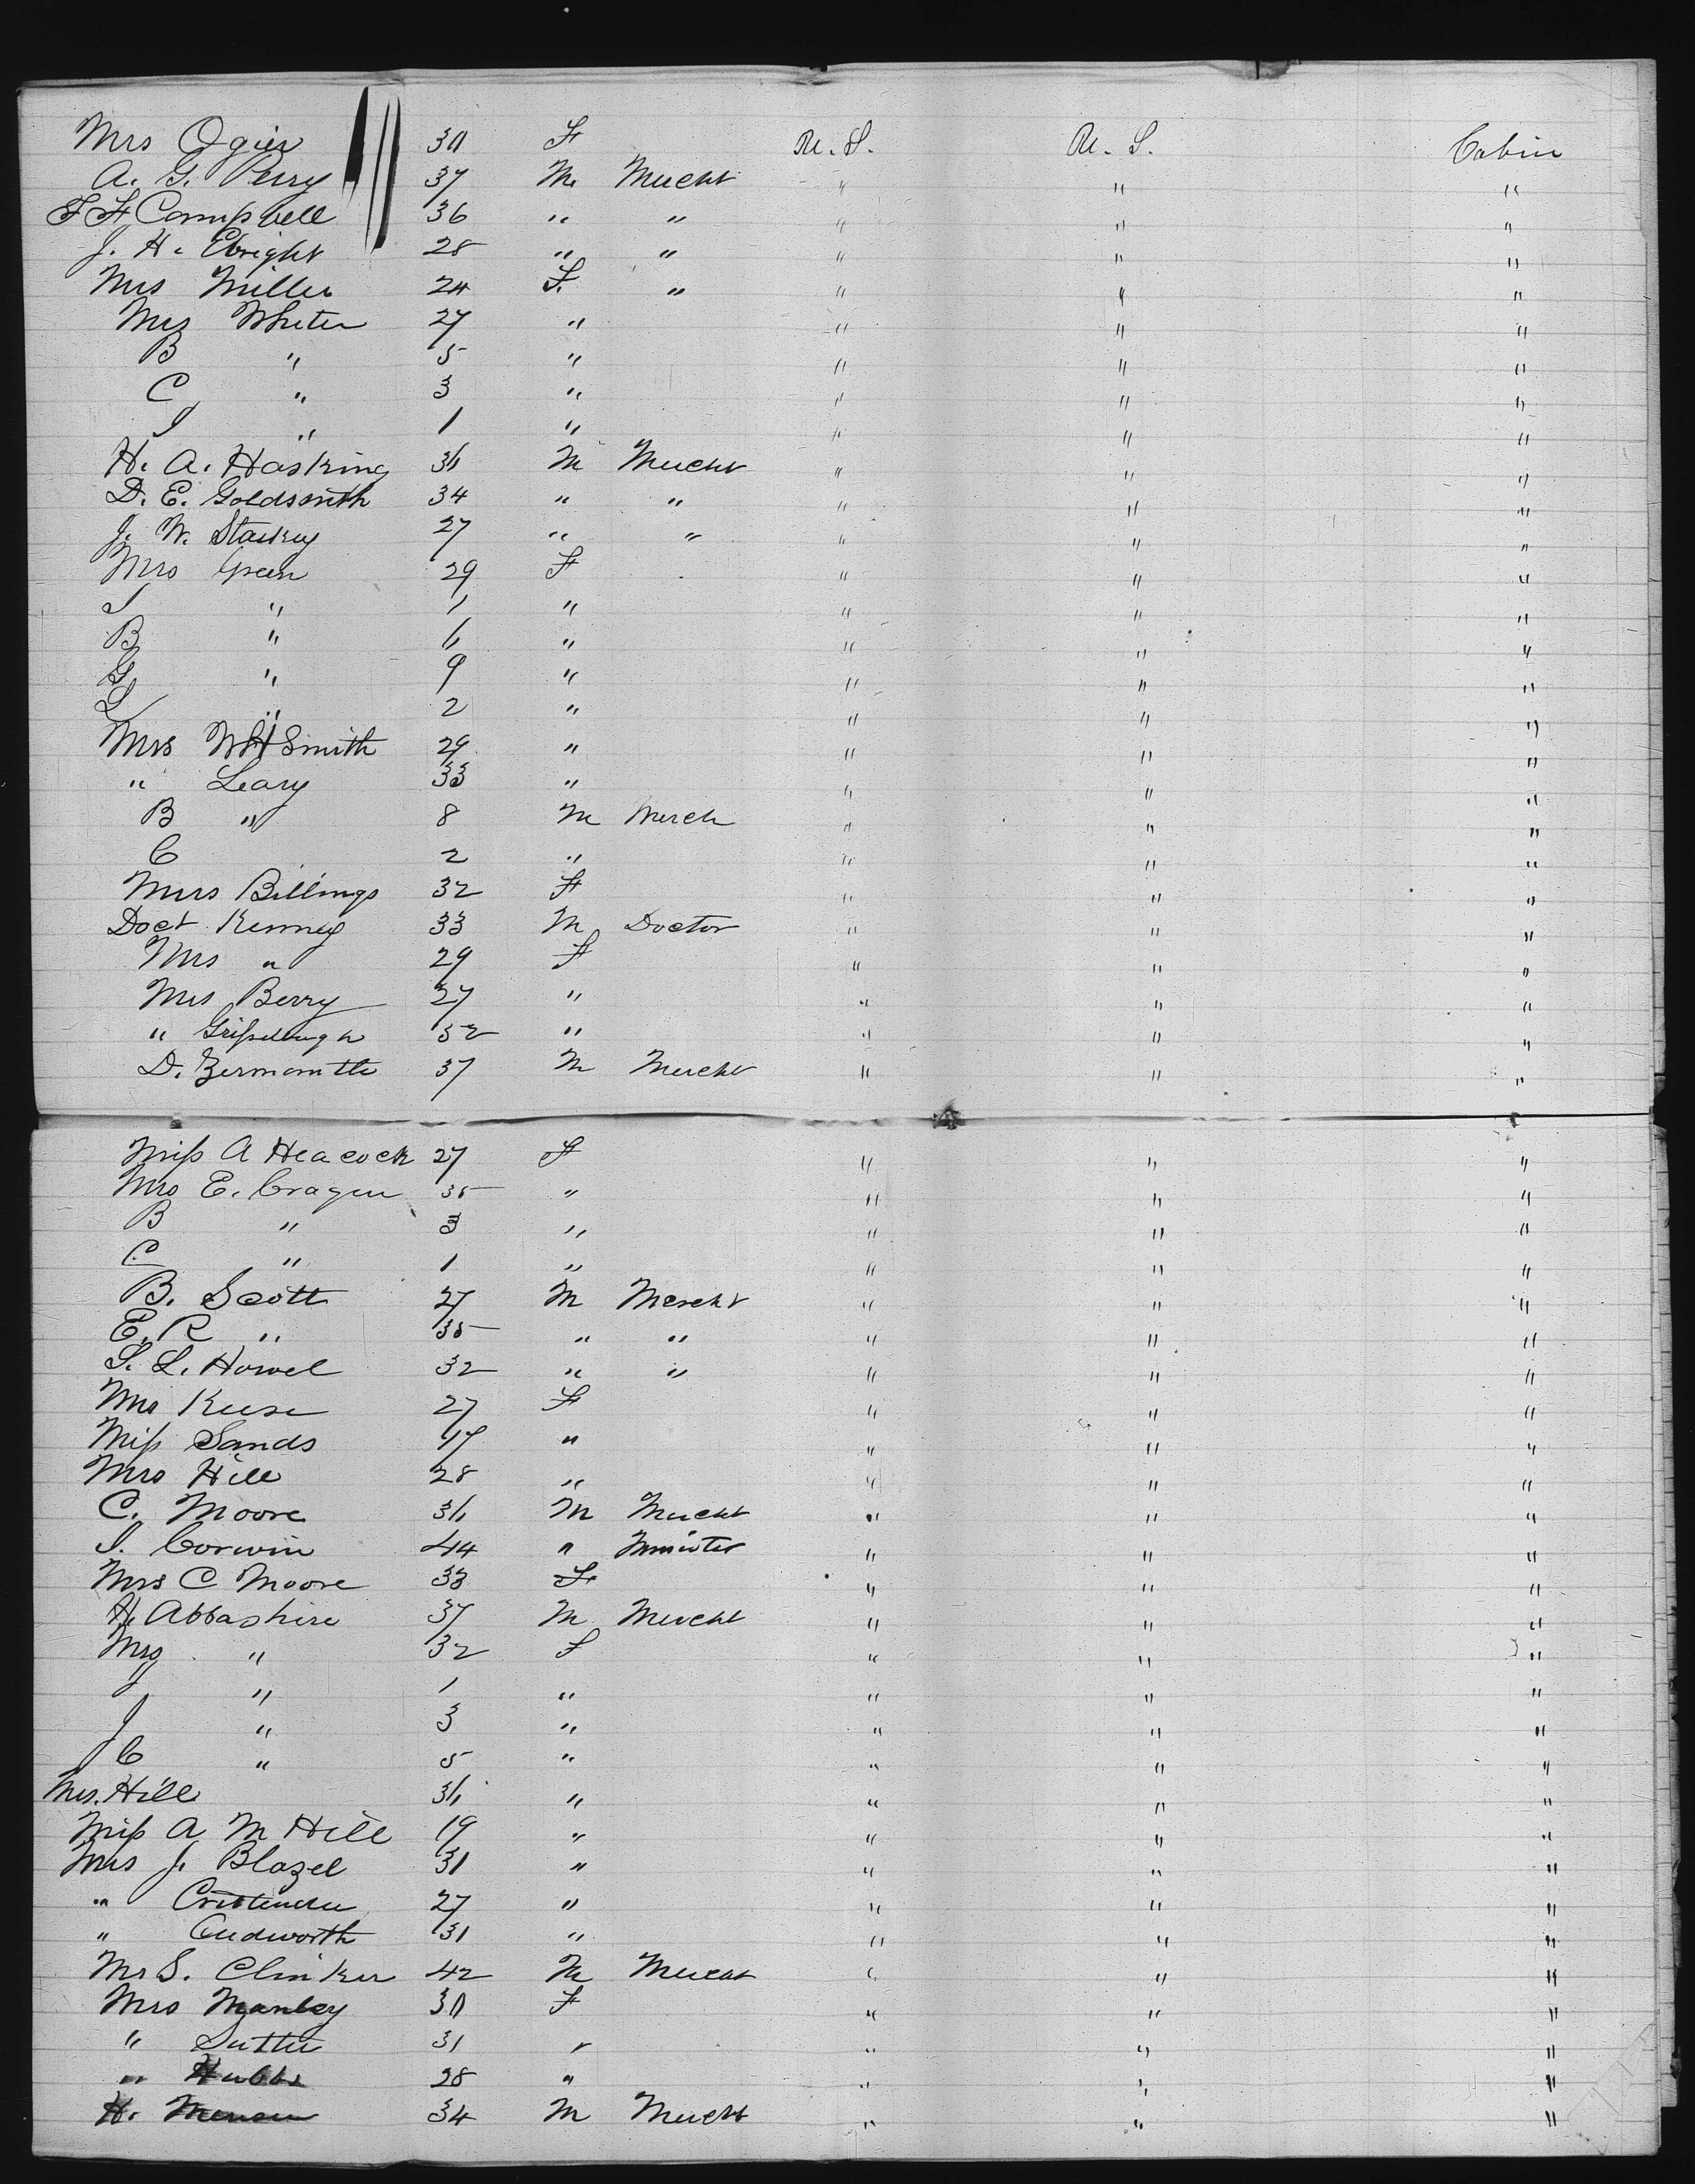 Mrs Ogier 30 F U. S. U. S. Cabin
A. G. Perry 37 M. Mercht " " "
F F Campbell 36 " " " " "
J. H. Ebright 28 " " " " "
Mrs Miller 24 F. " " " "
Mrs 27 " " " "
B " 5 " " " "
C " 3 " " " "
J " 1 " " " "
H. A. Hasking 36 M Mercht " " "
D. E. Goldsmith 34 " " " " "
J. W. Starkey 27 " " " " "
Mrs Green 29 F " " "
" 1 " " " "
B " 6 " " " "
G " 9 " " " "
L " 2 " " " "
Mrs WH Smith 29 " " " "
" Leary 33 " " " "
B " 8 M Merch " " "
C 2 " " " "
Mrs Billings 32 F " " "
Doct Kenney 33 M Doctor " " "
Mrs " 29 F " " "
Mrs Berry 27 " " " "
" 32 " " " "
D. 37 M Mercht " " "
Miss A Heacock 27 F " " "
Mrs E. Cragen 35 " " " "
B " 3 " " " "
C " 1 " " " "
B. Scott 27 M Mercht " " "
E. R " 35 " " " " "
S. L. Howel 32 " " " " "
Mrs Keese 27 F " " "
Miss Sands 17 " " " "
Mrs Hill 28 " " " "
C. Moore 36 M Mercht " " "
S. Corwin 44 " Minister " " "
Mrs C Moore 33 F " " "
H. Abbashire 37 M Mercht " " "
Mrs " 32 F " " "
J " 1 " " " "
J " 3 " " " "
C " 5 " " " "
Mrs. Hill 36 " " " "
Miss A M Hill 19 " " " "
Mrs J. Blazel 31 " " " "
" Crittenden 27 " " " "
" Cudworth 31 " " " "
Mr S. Clinker 42 M Mercht " " "
Mrs Manley 30 F " " "
" Sutter 31 " " " "
" Hubbs 28 " " " "
H. 34 M Mercht " " "